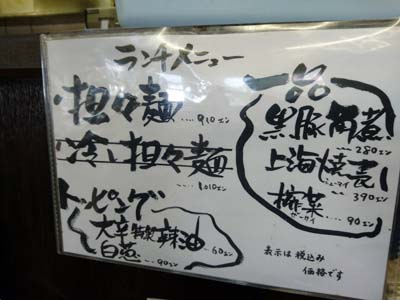 ランチメニュー
担々麺 ....910エン
冷し担々麺 ....1010エン
トッピング
大辛 特製辣油 ....60エン
白葱 ....90エン
一品
黒豚角煮 ....280エン
上海焼売 ....390エン
シューマイ
搾菜 ....90エン
ザーサイ
表示は税込み
価格です